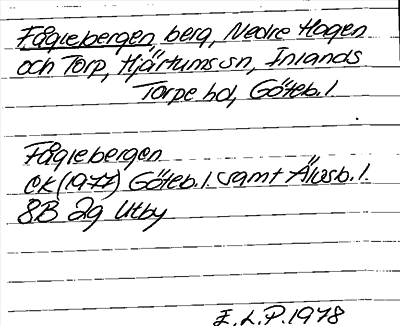 Fåglebergen, berg, Nedre Hagen
och Torp, Hjärtums sn, Inlands
Torpe hd, Göteb. l.
Fåglebergen
ek (1977) Göteb. l. samt Älvsb. l.
8B 2g Utby
E.L.P. 1978